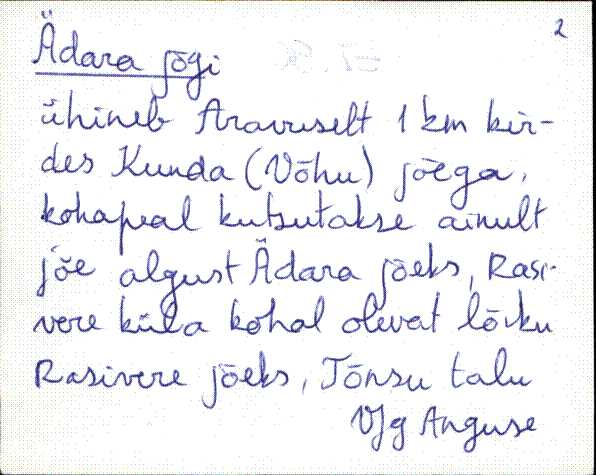 2
Ädara jõgi
ühineb Aravuselt 1 km kir-
des Kunda (Võhu) jõega,
kohapeal kutsutakse ainult
jõe algust Ädara jõeks, Rasi-
vere küla kohal olevat lõiku
Rasivere jõeks, Tõnsu talu
VJg Anguse